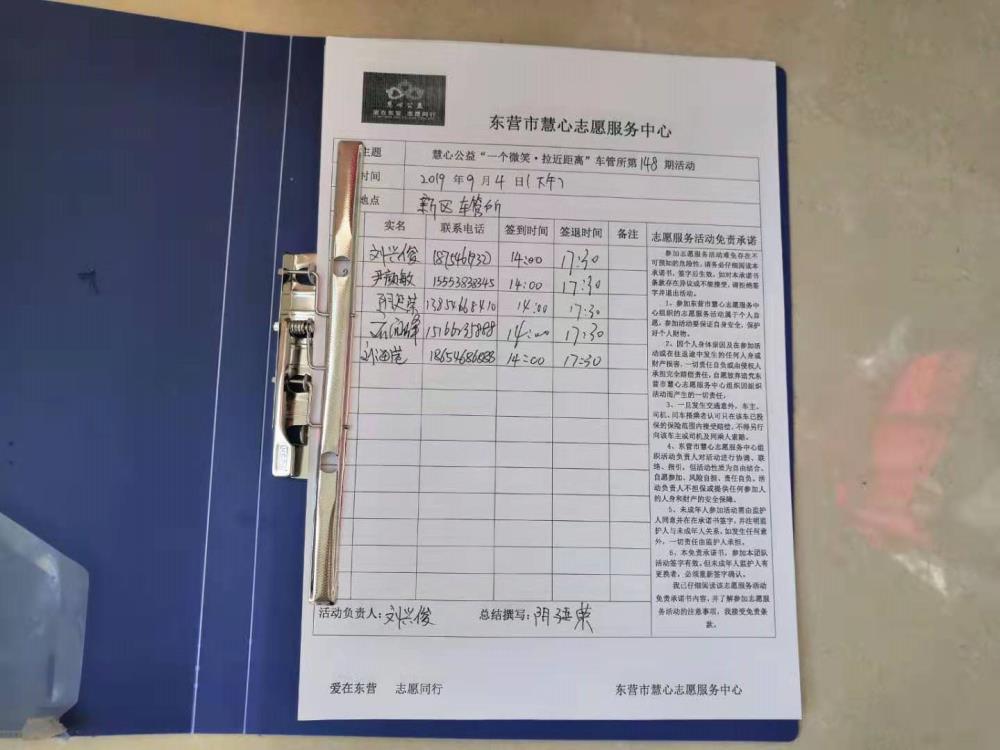 慧心公益
爱在东营 志愿同行
东营市慧心志愿服务中心
主题 慧心公益“一个微笑·拉近距离”车管所第148期活动
时间 2019年9月4日(下午)
地点 新区车管所
实名 联系电话 签到时间 签退时间 备注 志愿服务活动免责承诺
刘兴俊 14:00 17:30
尹颜敏 15553838345 14:00 17:30
14:00 17:30
14:00 17:30
18654686088 14:00 17:30
参加志愿服务活动难免存在不
可预知的危险性，请务必仔细阅读本
承诺书，签字后生效。如对本承诺书
条款存在异议或不能接受，请拒绝签
字并退出活动。
1、参加东营市慧心志愿服务中
心组织的志愿服务活动属于个人自
愿。参加活动要保证自身安全，保护
好个人财物。
2、因个人身体原因及在参加活
动或在往返途中发生的任何人身或
财产损害，一切责任自负或由侵权人
承担完全赔偿责任。自愿放弃追究东
营市慧心志愿服务中心组织因组织
活动而产生的一切责任。
3、一旦发生交通意外，车主、
司机、同车搭乘者认可只在该车已投
保的保险范围内接受赔偿，不得另行
向该车主或司机及同乘人索赔。
4、东营市慧心志愿服务中心组
织活动负责人对活动进行协调、联
络、指引。但活动性质为自由结合、
自愿参加、风险自担、责任自负。活
动负责人不担保或提供任何参加人
的人身和财产的安全保障。
5、未成年人参加活动需由监护
人同意并在在承诺书签字，并注明监护
人与未成年人关系。如发生任何意
外，一切责任由监护人承担。
6、本免责承诺书，参加本团队
活动签字有效。但未成年人监护人有
更换者，必须重新签字确认。
我已仔细阅读该志愿服务活动
免责承诺书内容，并了解参加志愿服
务活动的注意事项，我接受免责条
款。
活动负责人：刘兴俊 总结撰写：
爱在东营 志愿同行 东营市慧心志愿服务中心